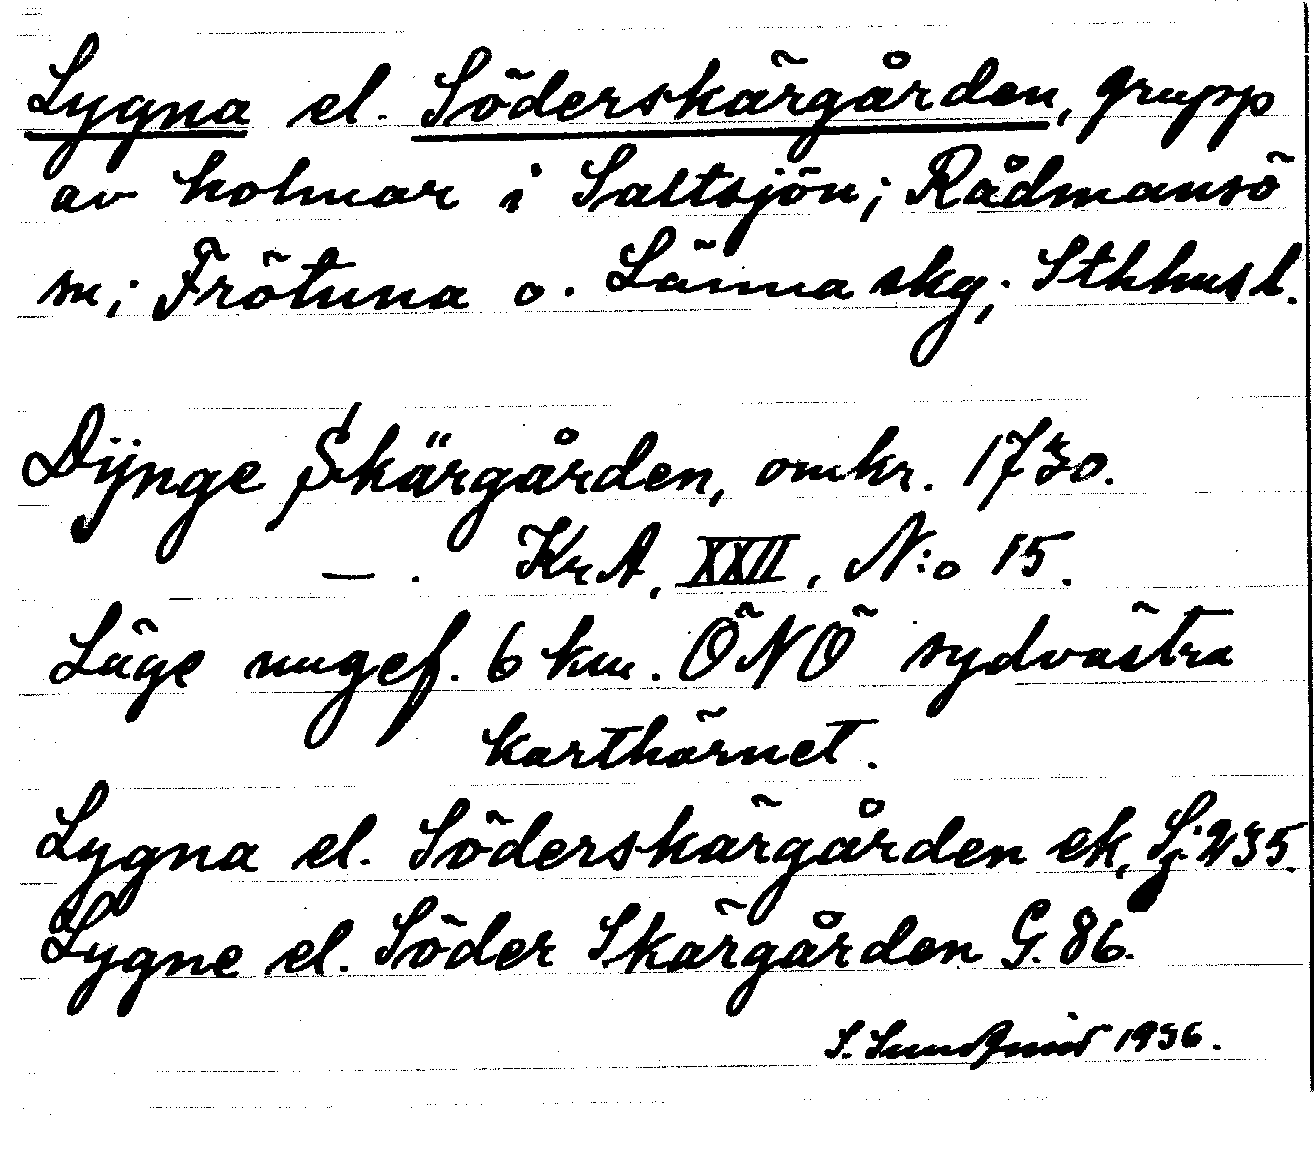 Lygna el. Söderskärgården, grupp
av holmar i Saltsjön; Rådmansö
sn; Frötuna o. Länna skg; Sthlms l.
Dijnge Skärgården, omkr. 1730.
— . KrA, XXII, N:o 15.
Läge ungef. 6 km. ÖNÖ sydvästra
karthörnet.
Lygna el. Söderskärgården ek, Sj. 235.
Lygne el. Söder Skärgården G. 86.
S. Sundqvist 1936.